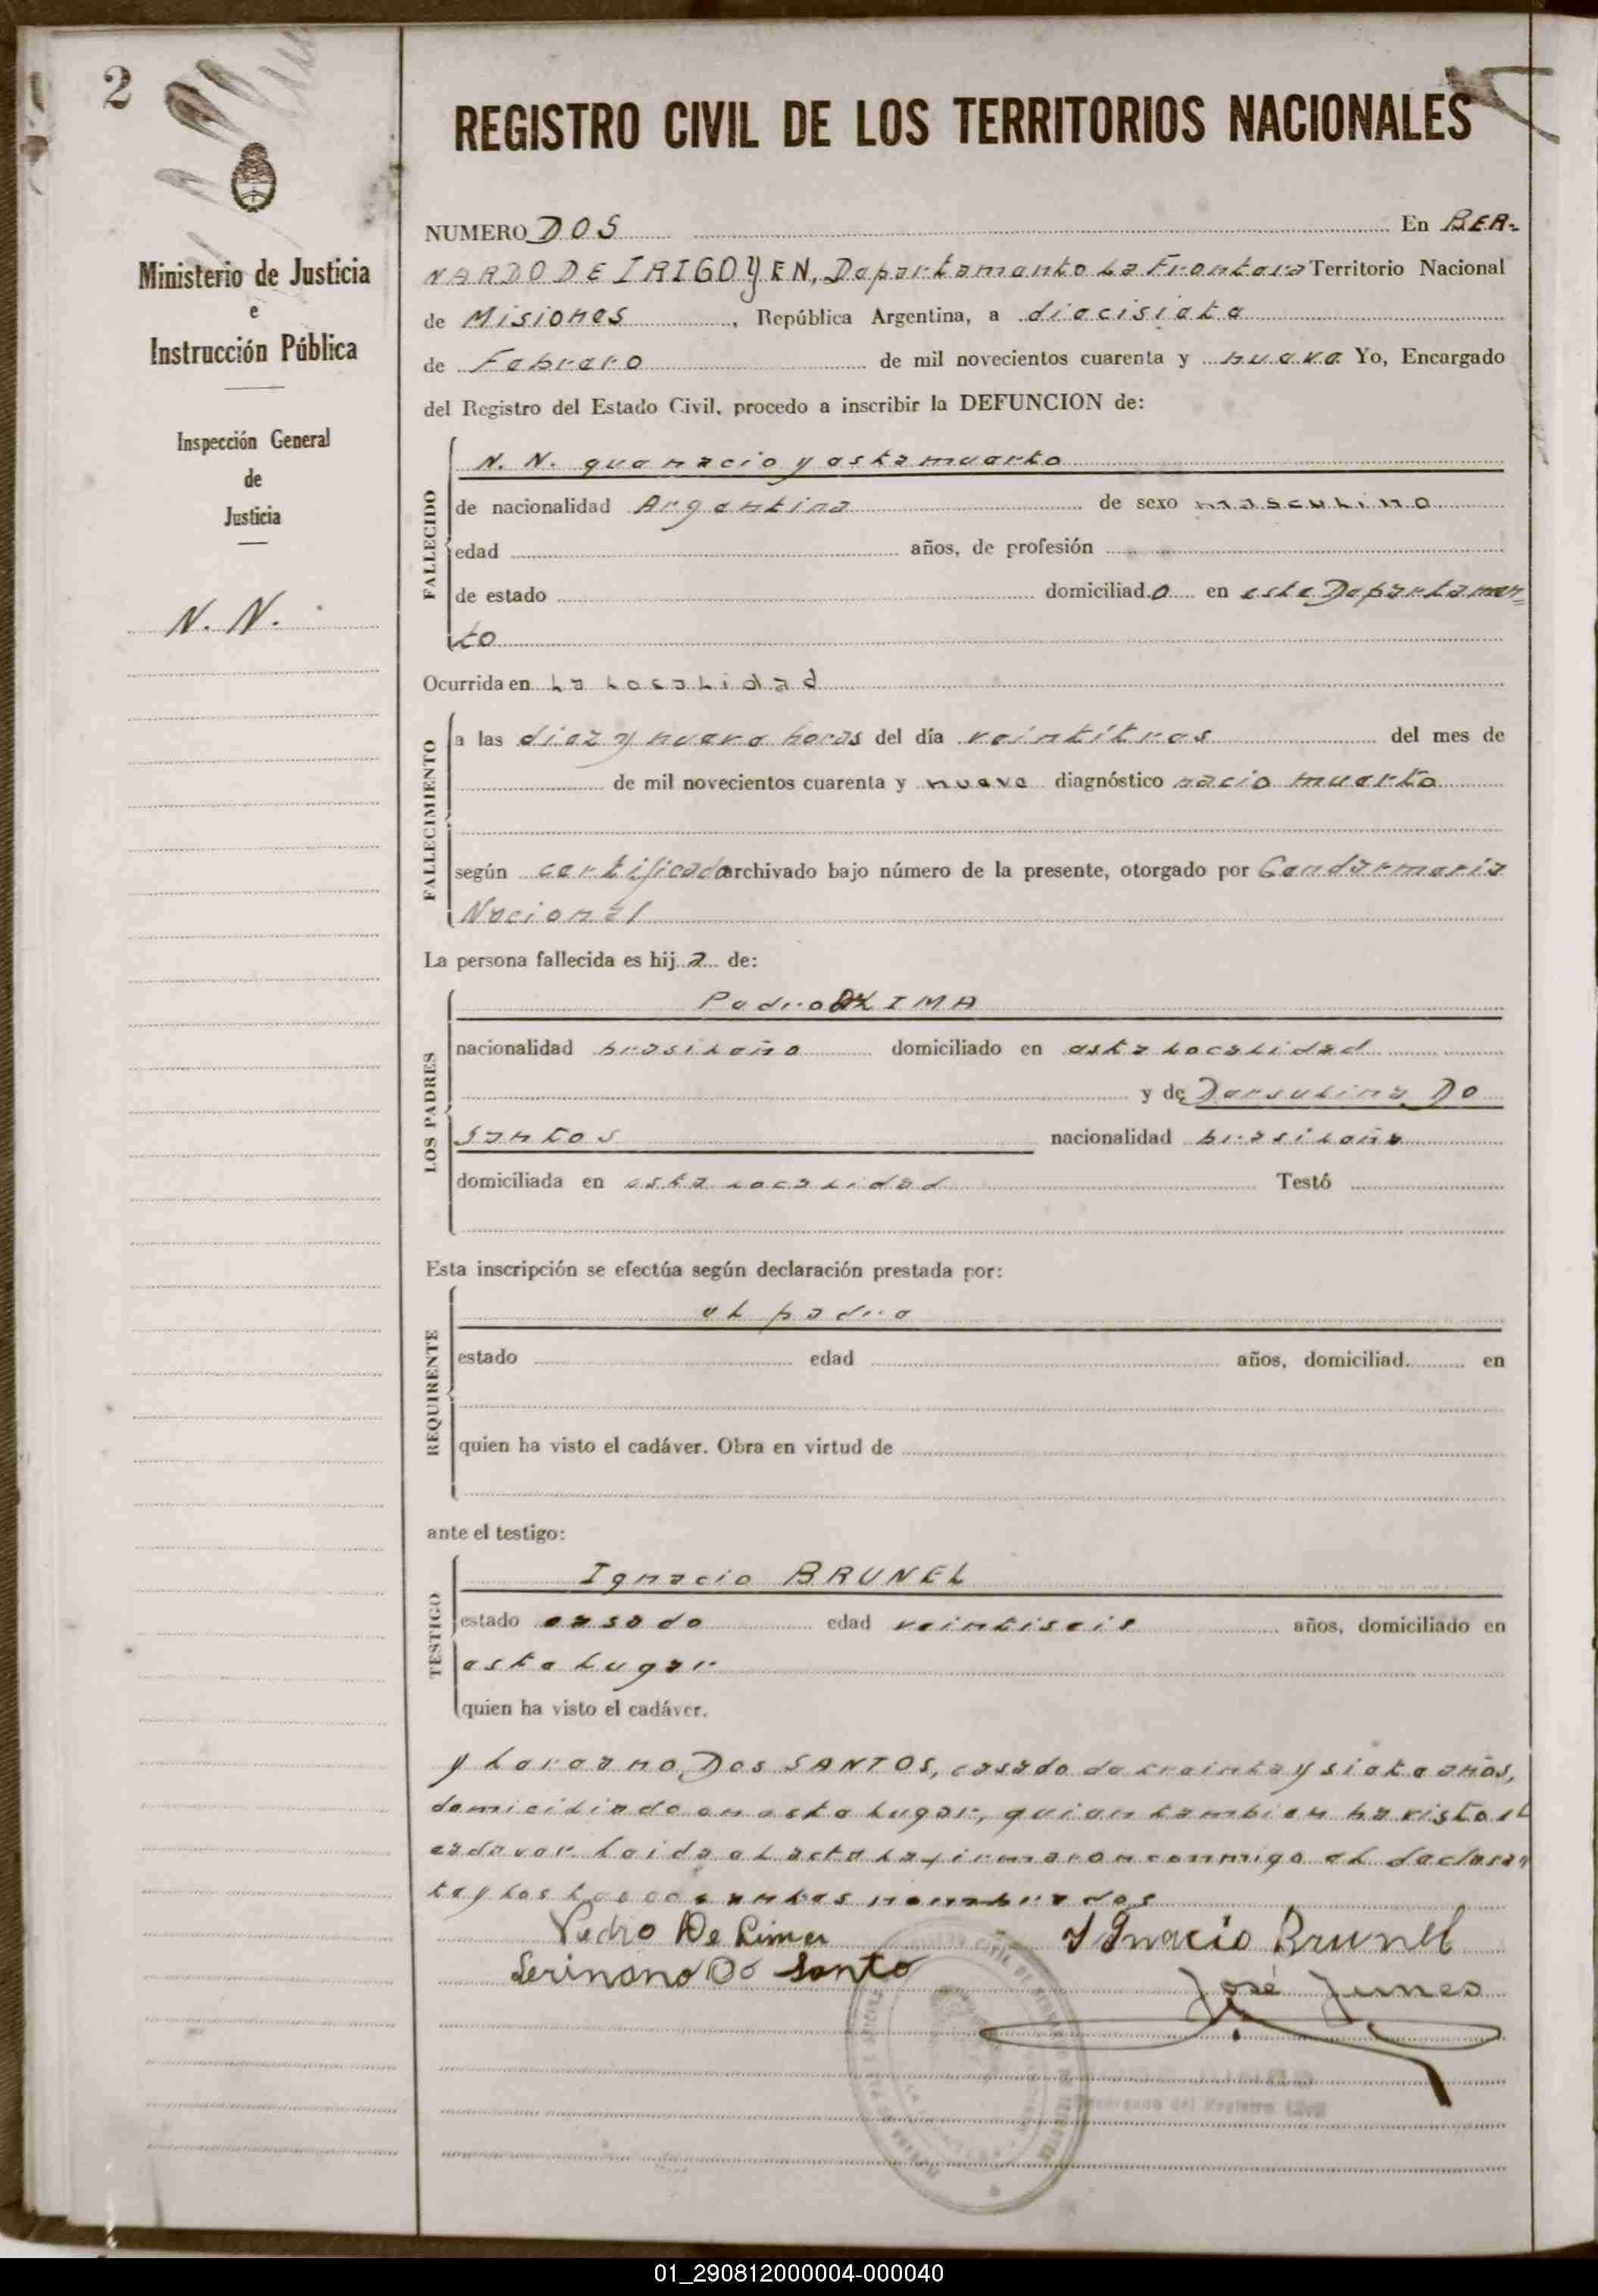 2
REGISTRO CIVIL DE LOS TERRITORIOS NACIONALES
Ministerio de Justicia
e
Instrucción Pública
Inspección General
de
Justicia
N. N.
NUMERO DOS En BER-
NARDO DE IRIGOYEN, Departamento La Frontera Territorio Nacional
de Misiones, República Argentina, a diecisiete
de Febrero de mil novecientos cuarenta y nueve Yo, Encargado
del Registro del Estado Civil, procedo a inscribir la DEFUNCION de:
FALLECIDO
N. N. que nacio y esta muerto
de nacionalidad Argentina de sexo masculino
edad años, de profesión
de estado domiciliado en este Departamen=
to
Ocurrida en La Localidad
FALLECIMIENTO
a las diez y nueve horas del día veintitres del mes de
de mil novecientos cuarenta y nueve diagnóstico nacio muerto
según certificado archivado bajo número de la presente, otorgado por Gendarmeria
Nacional
La persona fallecida es hija de:
LOS PADRES
Pedro LIMA
nacionalidad brasileño domiciliado en esta localidad
y de Dorsulina Do
Santos nacionalidad brasileña
domiciliada en esta localidad Testó
Esta inscripción se efectúa según declaración prestada por:
REQUIRENTE
el padre
estado edad años, domiciliad en
quien ha visto el cadáver. Obra en virtud de
ante el testigo:
TESTIGO
Ignacio BRUNEL
estado casado edad veintiseis años, domiciliado en
este lugar
quien ha visto el cadáver.
y Dos SANTOS, casado de treinta y siete años,
domiciliado en este lugar, quien tambien ha visto el
cadaver Leida el acta la firmaron conmigo el declaran
te y los nombrados
Pedro De Lima Ignacio Brunel
Serinano Do Santo
José Junes
Encargado del Registro Civil
01_290812000004-000040